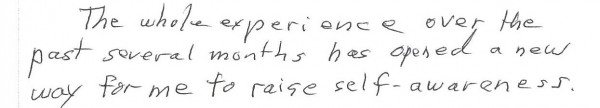 The whole experience over the
past several months has opened a new
way for me to raise self-awareness.